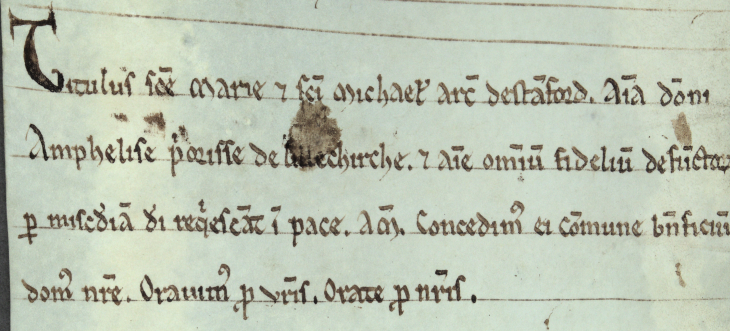 Titulus sc̄e Marie ⁊ sc̄i Michael' arc̄ de stāford. Aīa dōm
Amphelise p'orisse de lillechirche. ⁊ aīe omīū fideliū defūctoꝝ
ꝑ mis̄cd'iā d'i req'escāt ī pace. Am̄. Concedim᷒ ei cōmune bn̄ficiū
dom᷒ nr̄e. Orauim᷒ ꝓ vr̄is. Orate ꝓ nr̄is.